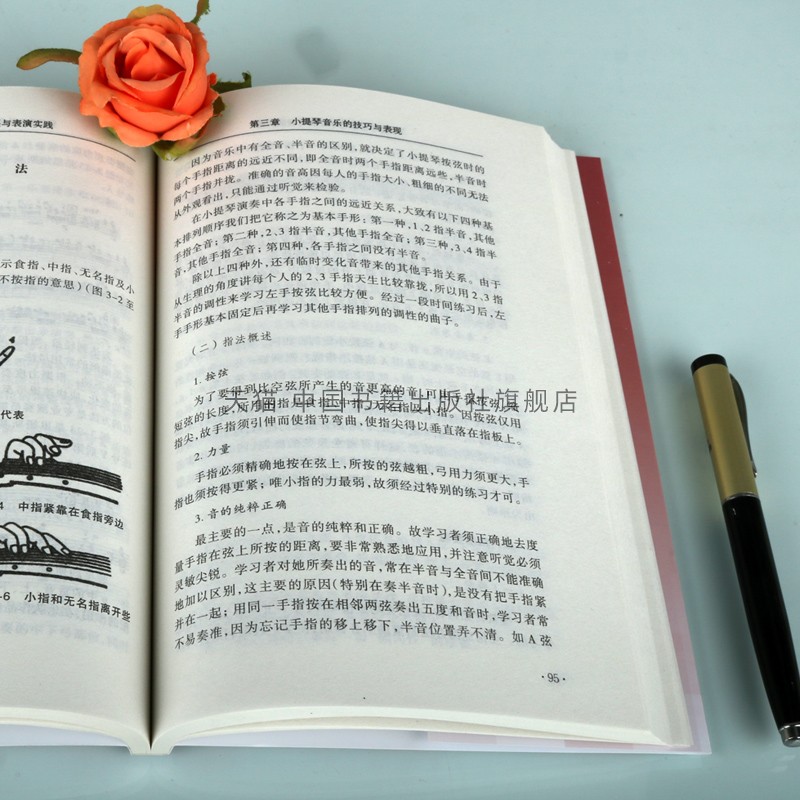 与表演实践
法
示食指、中指、无名指及小
不按指的意思)(图3-2至
代表
4 中指紧靠在食指旁边
-6 小指和无名指离开些
第三章 小提琴音乐的技巧与表现
因为音乐中有全音、半音的区别,就决定了小提琴按弦时的
每个手指距离的远近不同,即全音时两个手指距离远些,半音时
两个手指并拢。准确的音高因每人的手指大小、粗细的不同无法
从外观看出,只能通过听觉来检验。
在小提琴演奏中各手指之间的远近关系,大致有以下四种基
本排列顺序我们把它称之为基本手形:第一种,1、2指半音,其他
手指全音;第二种,2、3指半音,其他手指全音;第三种,3、4指半
音,其他手指全音;第四种,各手指之间没有半音。
除以上四种外,还有临时变化音带来的其他手指关系。由于
从生理的角度讲每个人的2、3手指天生比较靠拢,所以用2、3指
半音的调性来学习左手按弦比较方便。经过一段时间练习后,左
手手形基本固定后再学习其他手指排列的调性的曲子。
(二)指法概述
1. 按弦
为了要得到比空弦所产生的音更高的音,可用手
天猫 中国书籍出版社旗舰店
短弦的长度,所用的指是食指、中指、无名指及小指。因按弦仅用
指尖,故手指须引伸而使指节弯曲,使指尖得以垂直落在指板上。
2. 力量
手指必须精确地按在弦上,所按的弦越粗,弓用力须更大,手
指也须按得更紧;唯小指的力最弱,故须经过特别的练习才可。
3. 音的纯粹正确
最主要的一点,是音的纯粹和正确。故学习者须正确地去度
量手指在弦上所按的距离,要非常熟悉地应用,并注意听觉必须
灵敏尖锐。学习者对她所奏出的音,常在半音与全音间不能准确
地加以区别,这主要的原因(特别在奏半音时),是没有把手指紧
并在一起;用同一手指按在相邻两弦奏出五度和音时,学习者常
不易奏准,因为忘记手指的移上移下,半音位置弄不清。如A弦
·95·